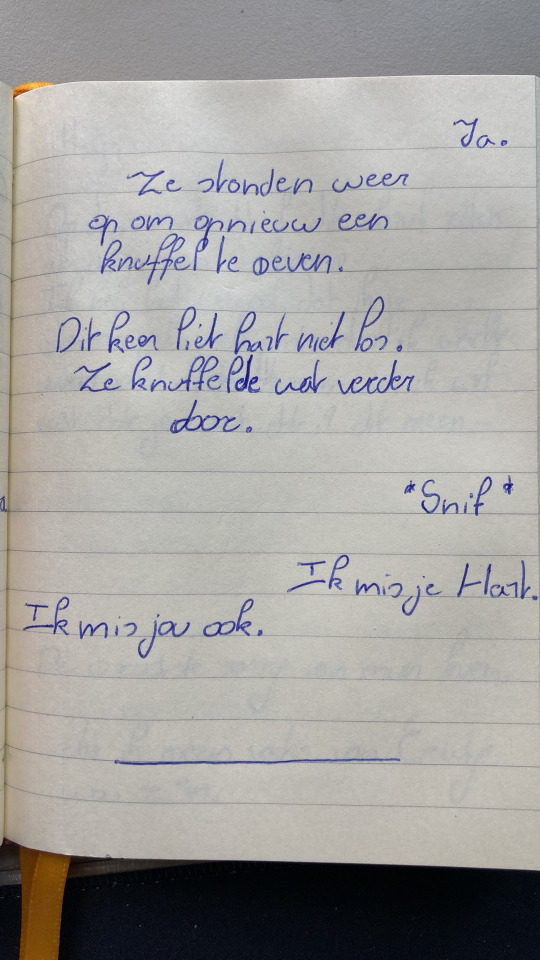 Ja.
Ze stonden weer
op om opnieuw een
knuffel te geven.
Dit keer liet hart niet los.
Ze knuffelde wat verder
door.
*Snif*
Ik mis je Hart.
Ik mis jou ook.